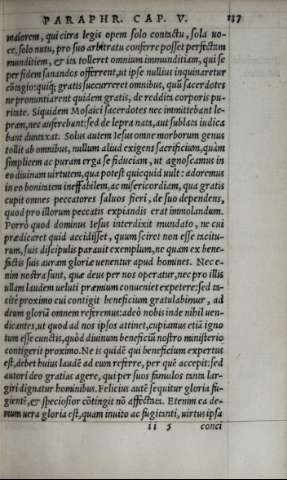 PARAPHR. CAP. V. 237
maiorem, qui citra legis opem solo contactu, sola uo-
ce, solo nutu, pro suo arbitratu conferre posset perfectam
munditiem, & ita tolleret omnium immunditiam, qui se
per fidem sanandos offerrent, ut ipse nullius inquinaretur
cōtagio: quiq; gratis succurreret omnibus, quū sacerdotes
ne pronuntiarent quidem gratis, de reddita corporis pu-
ritate. Siquidem Mosaici sacerdotes nec immittebant le-
pram, nec auferebant: sed de lepra nata, aut sublata iudica
bant duntaxat. Solus autem Iesus omne morborum genus
tollit ab omnibus, nullum aliud exigens sacrificium, quàm
simplicem ac puram erga se fiduciam, ut agnoscamus in
eo diuinam uirtutem, qua potest quicquid uult: adoremus
in eo bonitatem ineffabilem, ac misericordiam, qua gratis
cupit omnes peccatores saluos fieri, de suo dependens,
quod pro illorum peccatis expiandis erat immolandum.
Porrò quod dominus Iesus interdixit mundato, ne cui
prædicaret quid accidisset, quum sciret non esse tacitu-
rum, suis discipulis parauit exemplum, ne quam ex bene-
ficijs suis auram gloriæ uenentur apud homines. Nec e-
nim nostra sunt, quæ deus per nos operatur, nec pro illis
ullam laudem ueluti præmium conueniet expetere: sed ta-
citè proximo cui contigit beneficium gratulabimur, ad
deum gloriā omnem referemus: adeò nobis inde nihil uen-
dicantes, ut quod ad nos ipsos attinet, cupiamus etiā igno
tum esse cunctis, quòd diuinum beneficiū nostro ministerio
contigerit proximo. Ne is quidē qui beneficium expertus
est, debet huius laudē ad eum referre, per quē accepit: sed
autori deo gratias agere, qui per suos famulos tanta lar-
giri dignatur hominibus. Felicius autē sequitur gloria fu-
gientē, & speciosior cōtingit nō affectata. Etenim ea de-
mum uera gloria est, quam inuito ac fugienti, uirtus ipsa
ll 5 conci